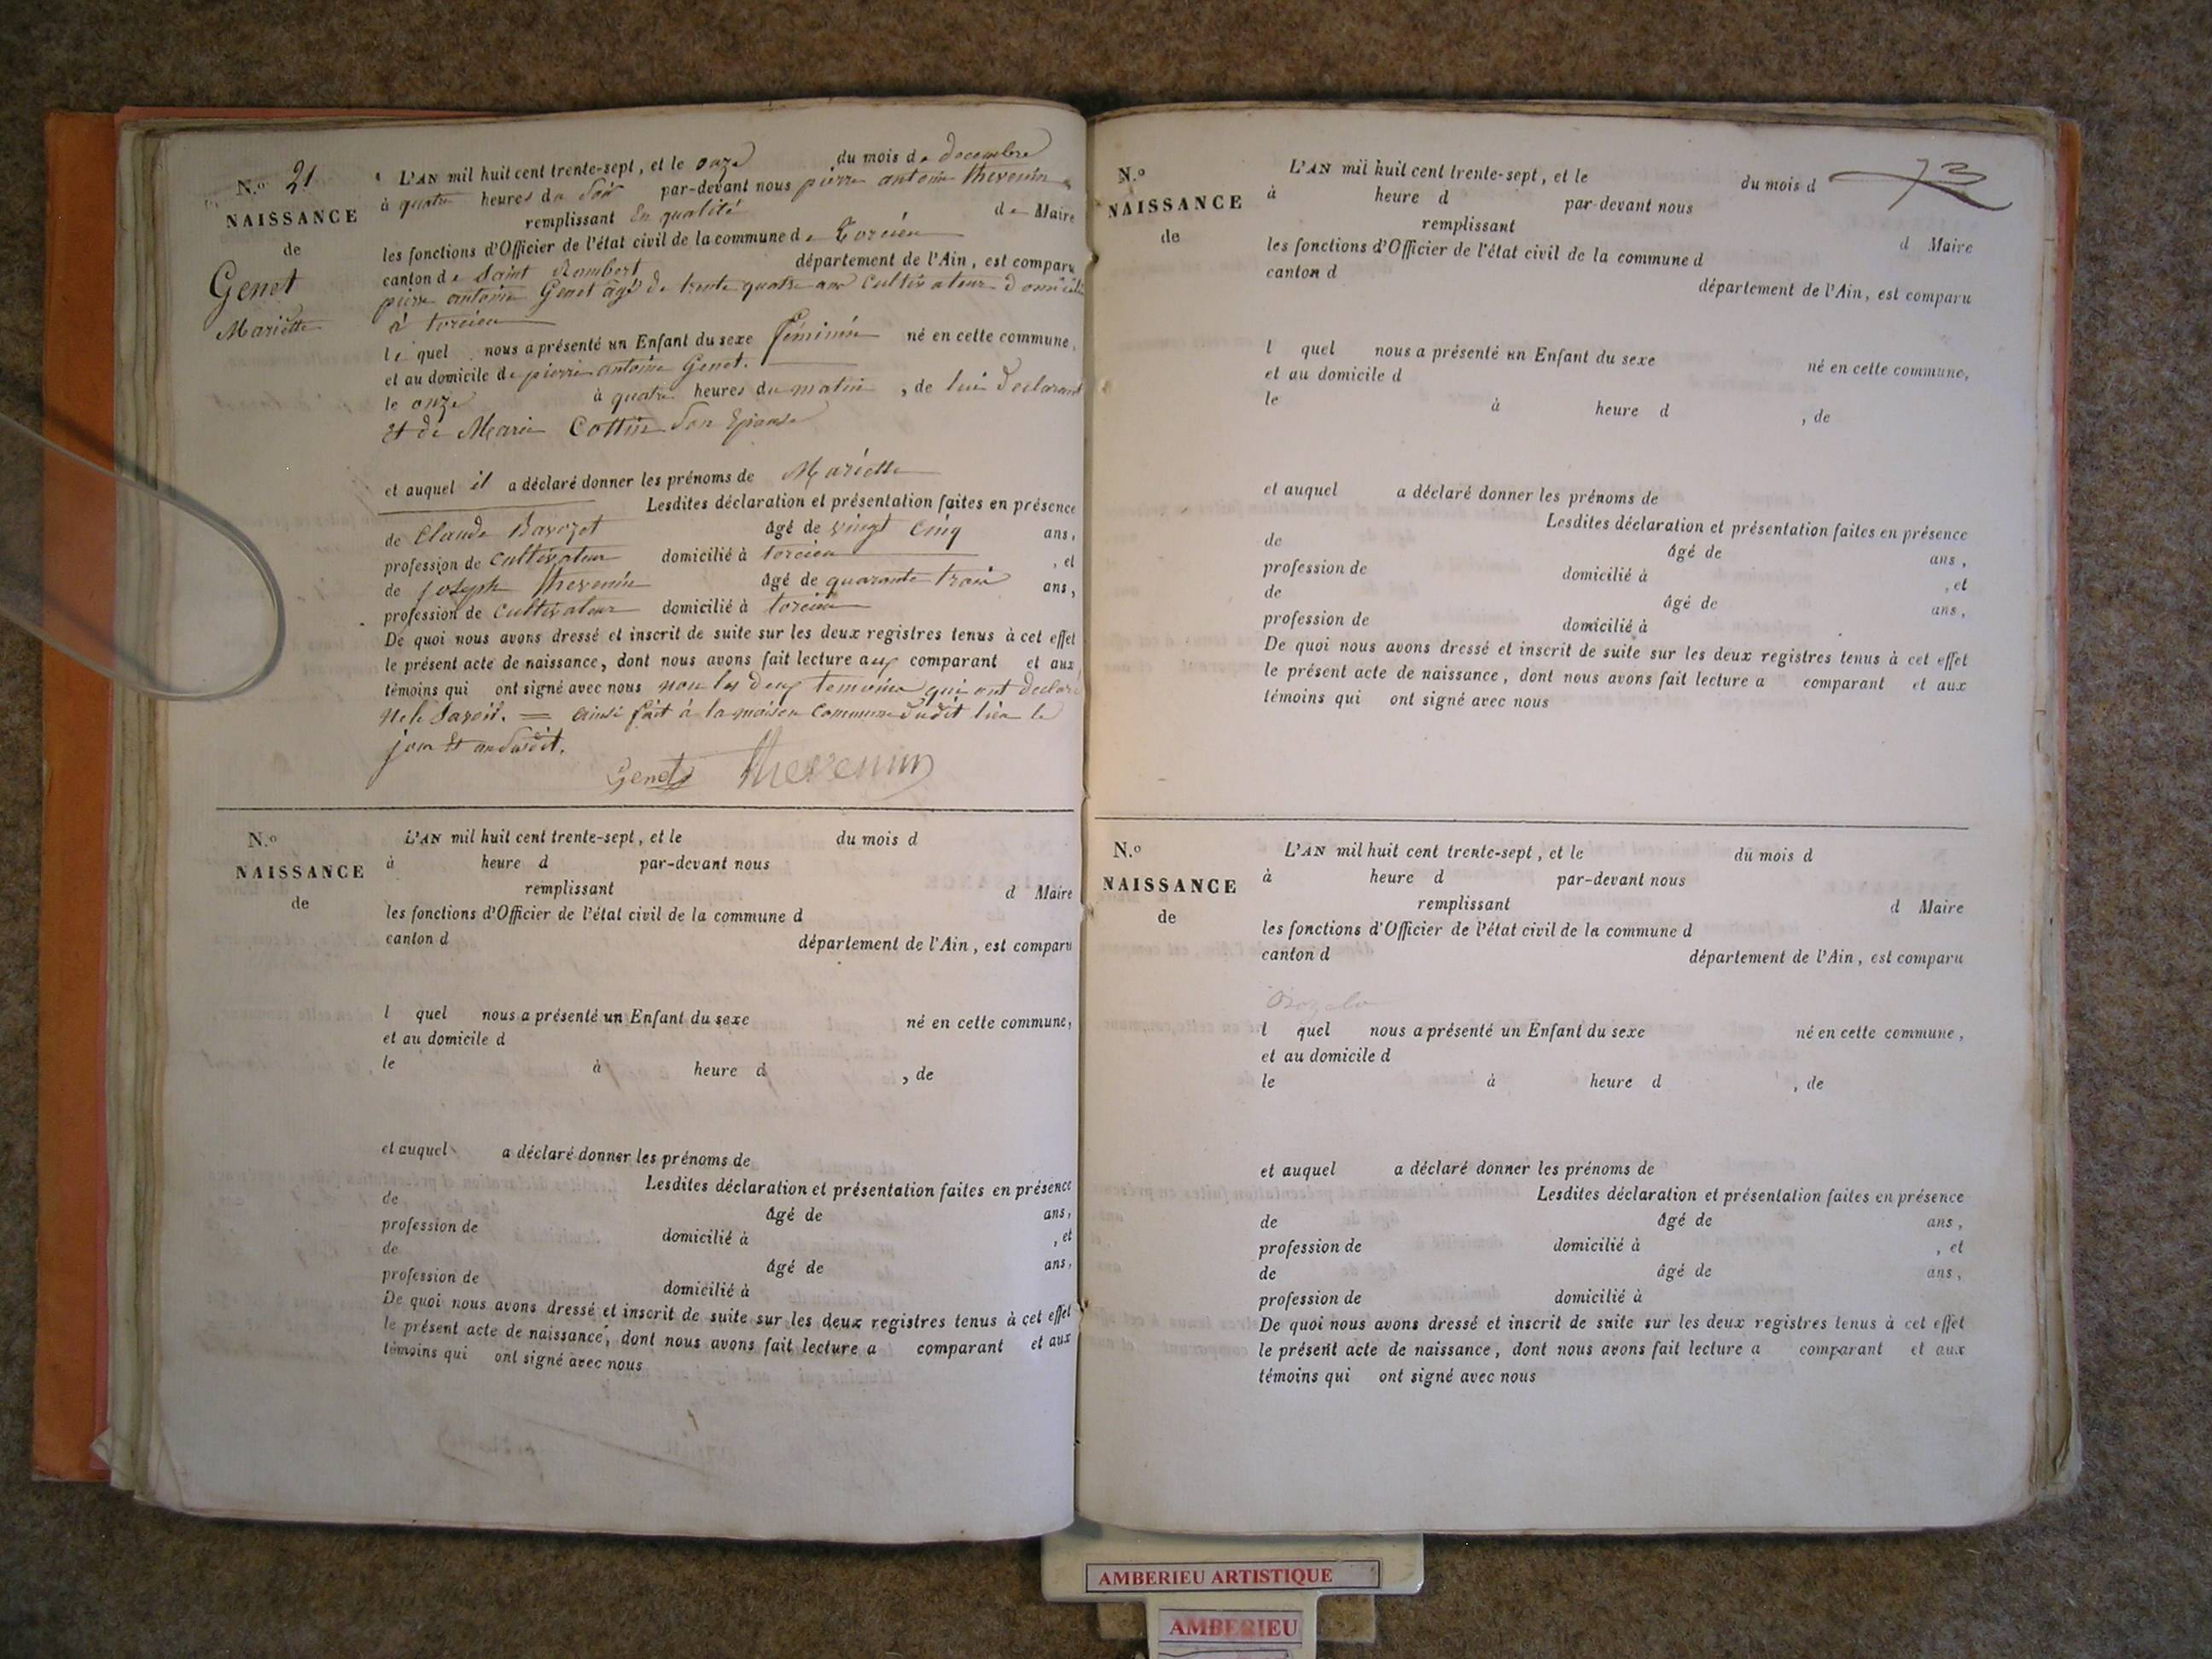 N.o 21
NAISSANCE
de
Genet
Mariette
L'AN mil huit cent trente-sept, et le onze du mois de decembre
à quatre heures du soir par-devant nous pierre antoine thevenin
remplissant En qualité de Maire
les fonctions d'Officier de l'état civil de la commune de Torcieu
canton de Saint Rambert département de l'Ain, est comparu
pierre antoine Genet âgé de trente quatre ans Cultivateur domicilié
à torcieu
le quel nous a présenté un Enfant du sexe féminin né en cette commune,
et au domicile de pierre antoine Genet.
le onze à quatre heures du matin, de lui declarant
Et de Marie Cottin Son Epouse
et auquel il a déclaré donner les prénoms de Mariette
Lesdites déclaration et présentation faites en présence
de Claude âgé de vingt cinq ans,
profession de cultivateur domicilié à torcieu, et
de joseph thevenin âgé de quarante trois ans,
profession de cultivateur domicilié à torcieu
De quoi nous avons dressé et inscrit de suite sur les deux registres tenus à cet effet
le présent acte de naissance, dont nous avons fait lecture aux comparant et aux
témoins qui ont signé avec nous non les deux temoins qui ont declaré
ne le Savoir. = ainsi fait à la maison Commune dudit lieu le
jour Et an Susdit.
Genet Thevenin
N.o
NAISSANCE
de
L'AN mil huit cent trente-sept, et le du mois d
à heure d par-devant nous
remplissant d Maire
les fonctions d'Officier de l'état civil de la commune d
canton d département de l'Ain, est comparu
l quel nous a présenté un Enfant du sexe né en cette commune,
et au domicile d
le à heure d , de
et auquel a déclaré donner les prénoms de
Lesdites déclaration et présentation faites en présence
de âgé de ans,
profession de domicilié à , et
de âgé de ans,
profession de domicilié à
De quoi nous avons dressé et inscrit de suite sur les deux registres tenus à cet effet
le présent acte de naissance, dont nous avons fait lecture a comparant et aux
témoins qui ont signé avec nous
73
N.o
NAISSANCE
de
L'AN mil huit cent trente-sept, et le du mois d
à heure d par-devant nous
remplissant d Maire
les fonctions d'Officier de l'état civil de la commune d
canton d département de l'Ain, est comparu
l quel nous a présenté un Enfant du sexe né en cette commune,
et au domicile d
le à heure d , de
et auquel a déclaré donner les prénoms de
Lesdites déclaration et présentation faites en présence
de âgé de ans,
profession de domicilié à , et
de âgé de ans,
profession de domicilié à
De quoi nous avons dressé et inscrit de suite sur les deux registres tenus à cet effet
le présent acte de naissance, dont nous avons fait lecture a comparant et aux
témoins qui ont signé avec nous
N.o
NAISSANCE
de
L'AN mil huit cent trente-sept, et le du mois d
à heure d par-devant nous
remplissant d Maire
les fonctions d'Officier de l'état civil de la commune d
canton d département de l'Ain, est comparu
l quel nous a présenté un Enfant du sexe né en cette commune,
et au domicile d
le à heure d , de
et auquel a déclaré donner les prénoms de
Lesdites déclaration et présentation faites en présence
de âgé de ans,
profession de domicilié à , et
de âgé de ans,
profession de domicilié à
De quoi nous avons dressé et inscrit de suite sur les deux registres tenus à cet effet
le présent acte de naissance, dont nous avons fait lecture a comparant et aux
témoins qui ont signé avec nous
AMBERIEU ARTISTIQUE
AMBERIEU